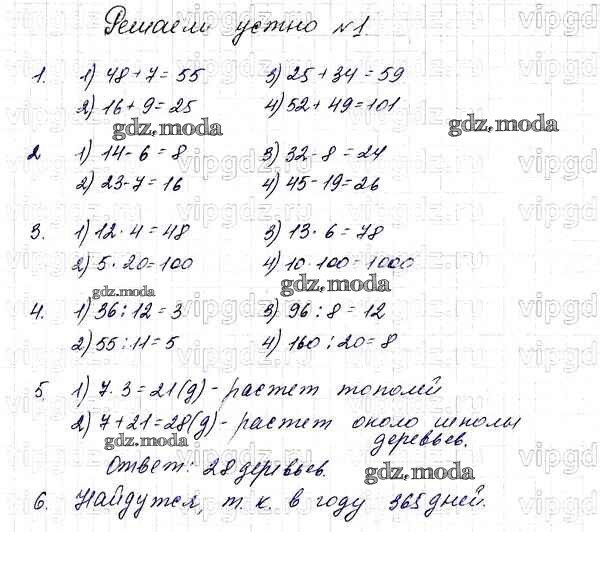 Решаем устно №1
1. 1) 48+7=55 3) 25+34=59
2) 16+9=25 4) 52+49=101
gdz.moda gdz.moda
2 1) 14-6=8 3) 32-8=24
2) 23-7=16 4) 45-19=26
3. 1) 12·4=48 3) 13·6=78
2) 5·20=100 4) 10·100=1000
gdz.moda gdz.moda
4. 1) 36:12=3 3) 96:8=12
2) 55:11=5 4) 160:20=8
5 1) 7·3=21(д) - растет тополей
2) 7+21=28(д) - растет около школы
деревьев.
gdz.moda
Ответ: 28 деревьев.
gdz.moda
6. Найдутся, т.к. в году 365 дней.
vipgdz.ru